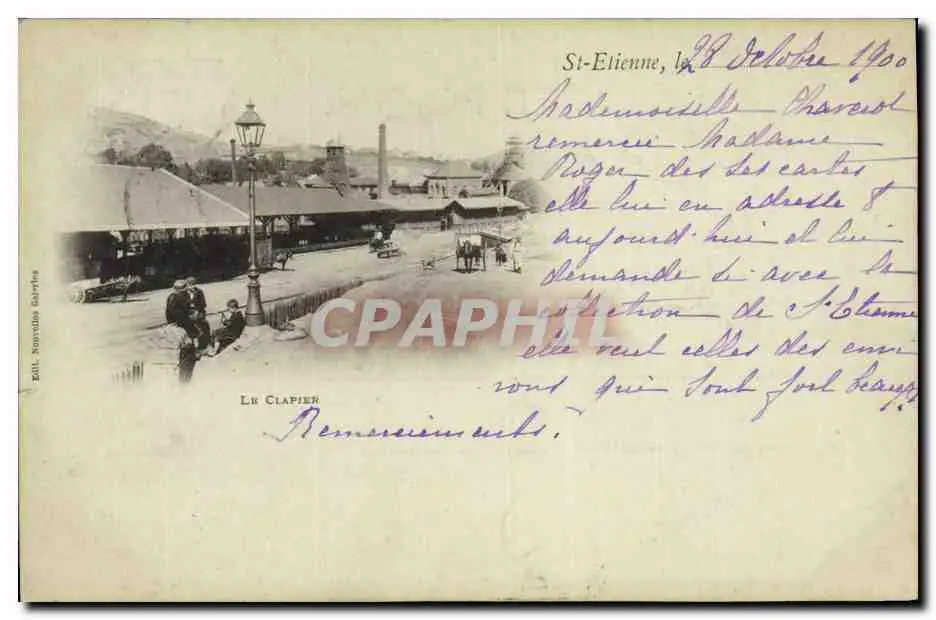 St-Etienne, le 28 Octobre 1900
Mademoiselle
remercie Madame
Roger des Ses cartes
elle lui en adresse 8
aujourd'hui et lui
demande si avec la
collection de St Etienne
elle veut celles des envi
rons qui sont fort beaux.
Remerciements.
LE CLAPIER
Edit. Nouvelles Galeries
CPAPHIL